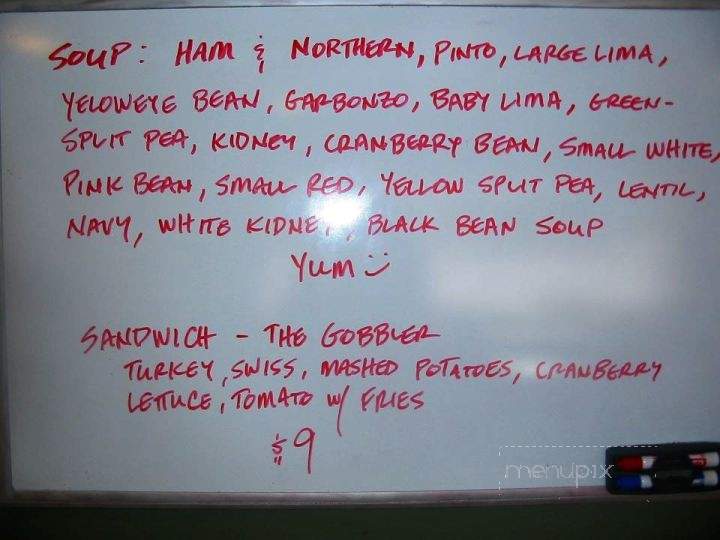 SOUP: HAM & NORTHERN, PINTO, LARGE LIMA,
YELOWEYE BEAN, GARBONZO, BABY LIMA, GREEN-
SPLIT PEA, KIDNEY, CRANBERRY BEAN, SMALL WHITE,
PINK BEAN, SMALL RED, YELLOW SPLIT PEA, LENTIL,
NAVY, WHITE KIDNEY, BLACK BEAN SOUP
YUM :)
SANDWICH - THE GOBBLER
TURKEY, SWISS, MASHED POTATOES, CRANBERRY
LETTUCE, TOMATO W/ FRIES
$9
menupix